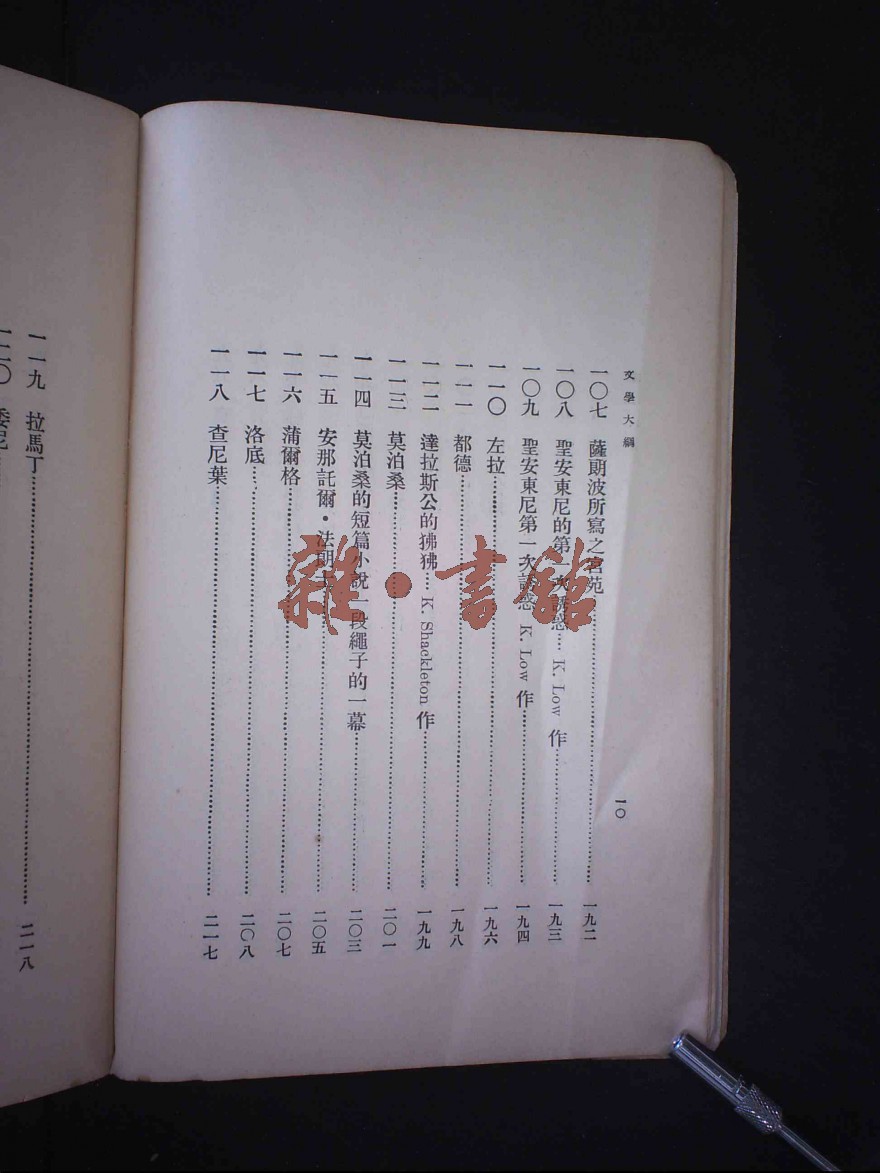 文學大綱
一〇
一〇七 薩朗波所寫之宮苑 一九二
一〇八 聖安東尼的第一次誘惑 K. Low 作 一九三
一〇九 聖安東尼第一次誘惑 K. Low 作 一九四
一一〇 左拉 一九六
一一一 都德 一九八
一一二 達拉斯公的狒狒 K. Shackleton 作 一九九
一一三 莫泊桑 二〇一
一一四 莫泊桑的短篇小說一段繩子的一幕 二〇三
一一五 安那託爾・法朗士 二〇五
一一六 蒲爾格 二〇七
一一七 洛底 二〇八
一一八 查尼葉 二一七
一一九 拉馬丁 二一八
一二〇
雜・書館